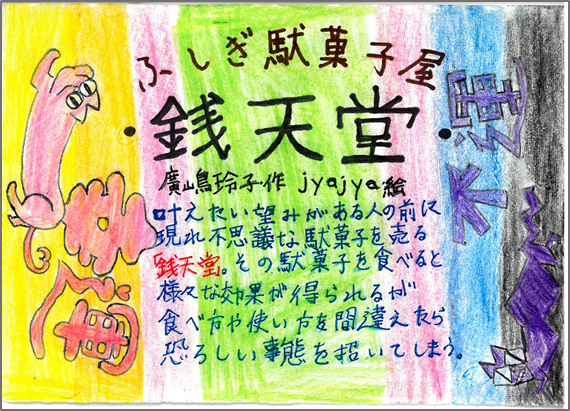 ふしぎ駄菓子屋
・銭天堂・
廣嶋玲子・作 jyajya・絵
叶えたい望みがある人の前に
現れ不思議な駄菓子を売る
「銭天堂」。その駄菓子を食べると
様々な効果が得られるが
食べ方や使い方を間違えたら
恐ろしい事態を招いてしまう。
幸運
不運